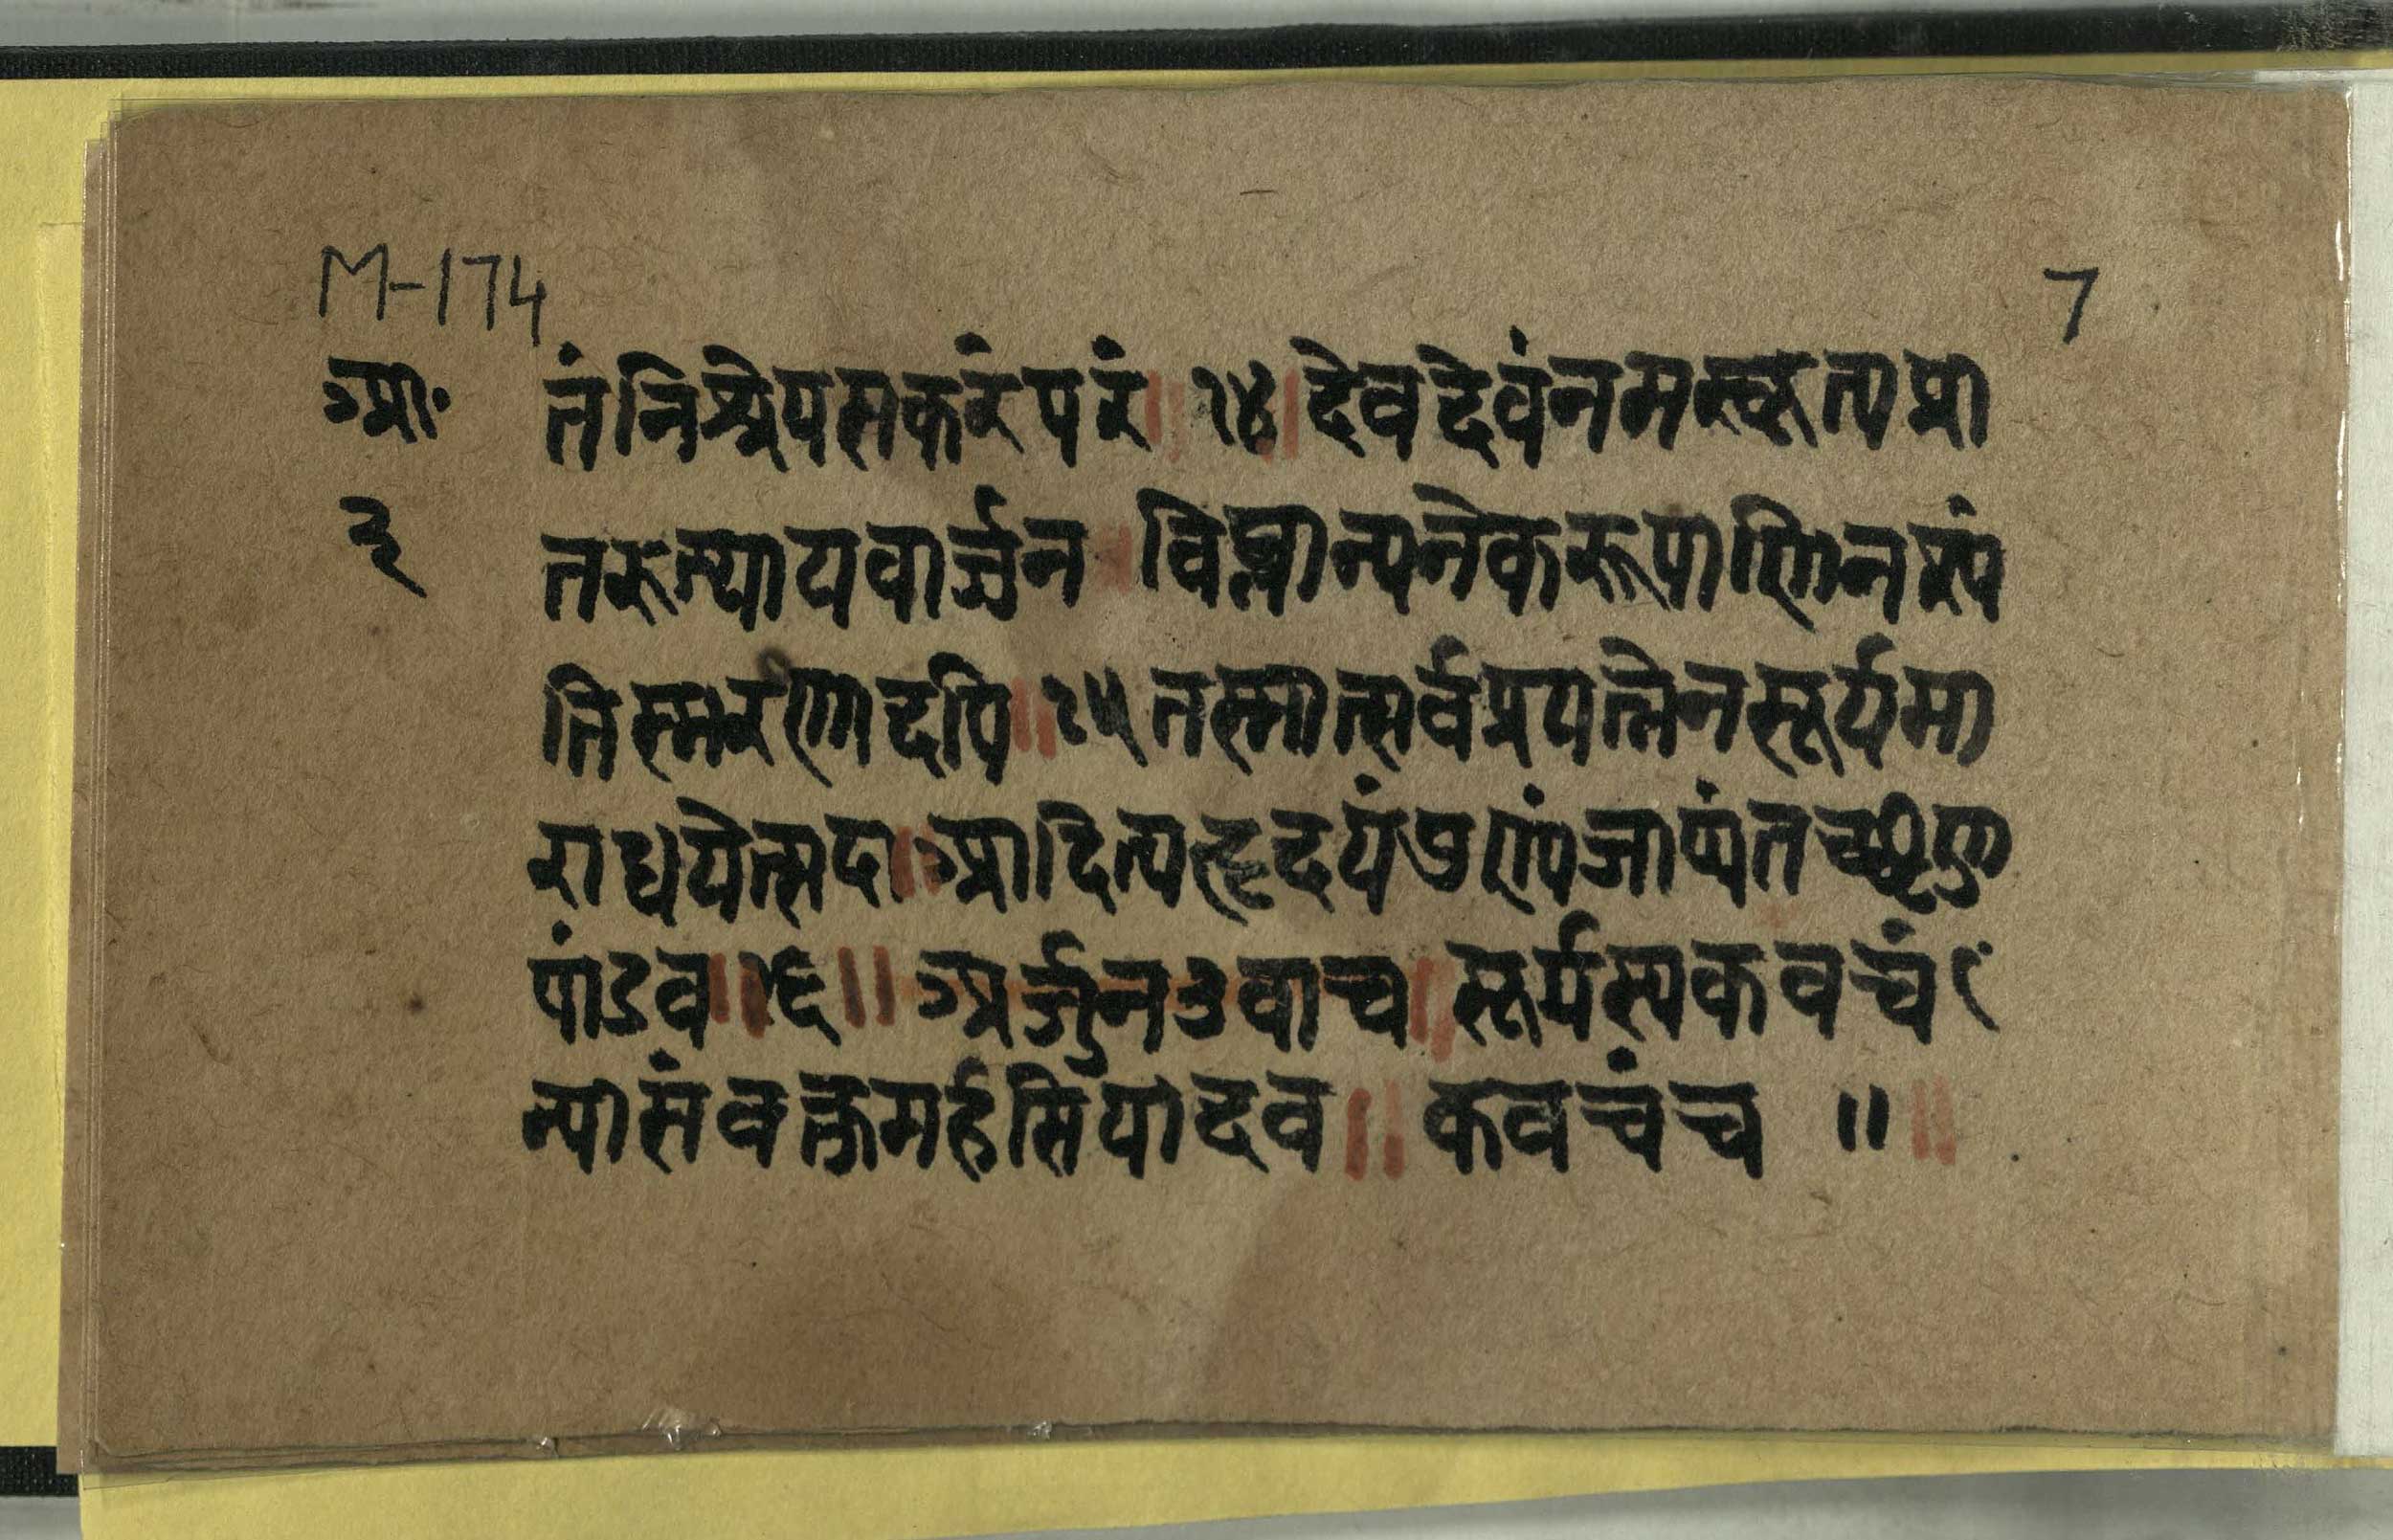 M-174
7
आ॰
३
तं निश्रेयसकरं परं ॥ १४ ॥ देवदेवं नमस्कृत्य प्रा
तरुत्थाय वार्जुन ॥ विघ्नान्यनेकरूपाणि नश्यं
ति स्मरणादपि ॥ १५ तस्मात्सर्वप्रयत्नेन सूर्यमा
राधयेत्सदा ॥ आदित्यहृदयं जाप्यं तच्छृणु
पांडव ॥ १६ ॥ अर्जुन उवाच ॥ सूर्यस्य कवचं
न्यासं वक्तुमर्हसि यादव ॥ कवचं च ॥ ॥